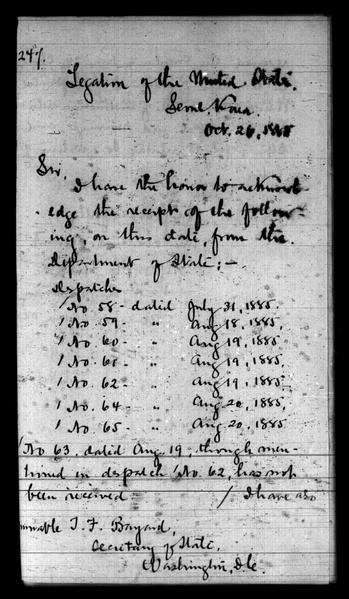 247.
Legation of the United States.
Seoul, Korea.
Oct. 26, 1885
Sir,
I have the honor to acknowl-
edge the receipt of the follow-
ing, on this date, from the
Department of State; —
Dispatches
No 58 - dated July 31, 1885.
No. 59 - " Aug 18, 1885.
No. 60 - " Aug 19, 1885.
No. 61 - " Aug 19, 1885.
No. 62 - " Aug 19, 1885.
No. 64 - " Aug 20, 1885.
No. 65 - " Aug 20, 1885.
No. 63, dated Aug. 19, though men-
tioned in dispatch No. 62, has not
been received / I have also
norable T. F. Bayard,
Secretary of State,
Washington, D.C.